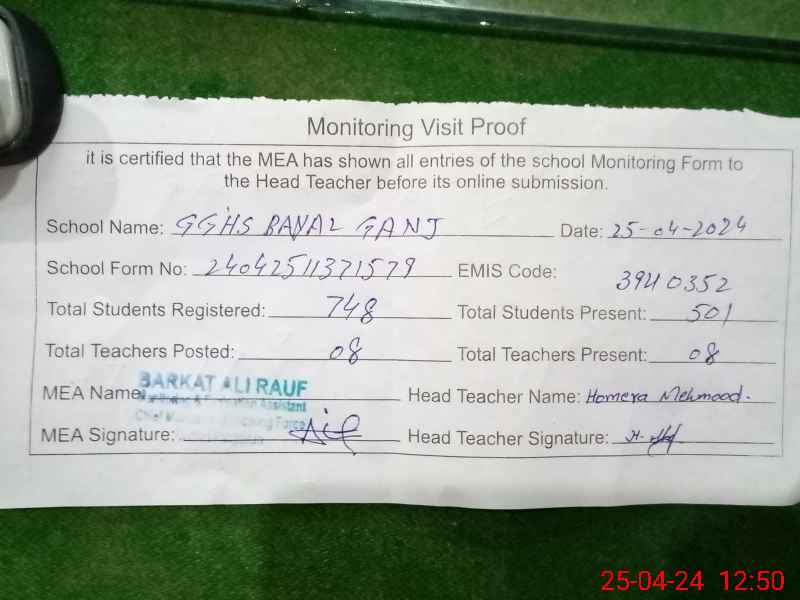 Monitoring Visit Proof
it is certified that the MEA has shown all entries of the school Monitoring Form to
the Head Teacher before its online submission.
School Name: GGHS BANAL GANJ Date: 25-04-2024
School Form No: 24042511371579 EMIS Code: 39410352
Total Students Registered: 748 Total Students Present: 501
Total Teachers Posted: 08 Total Teachers Present: 08
MEA Name: BARKAT ALI RAUF Head Teacher Name: Homera Mehmood.
Assistant
MEA Signature: Head Teacher Signature:
25-04-24 12:50